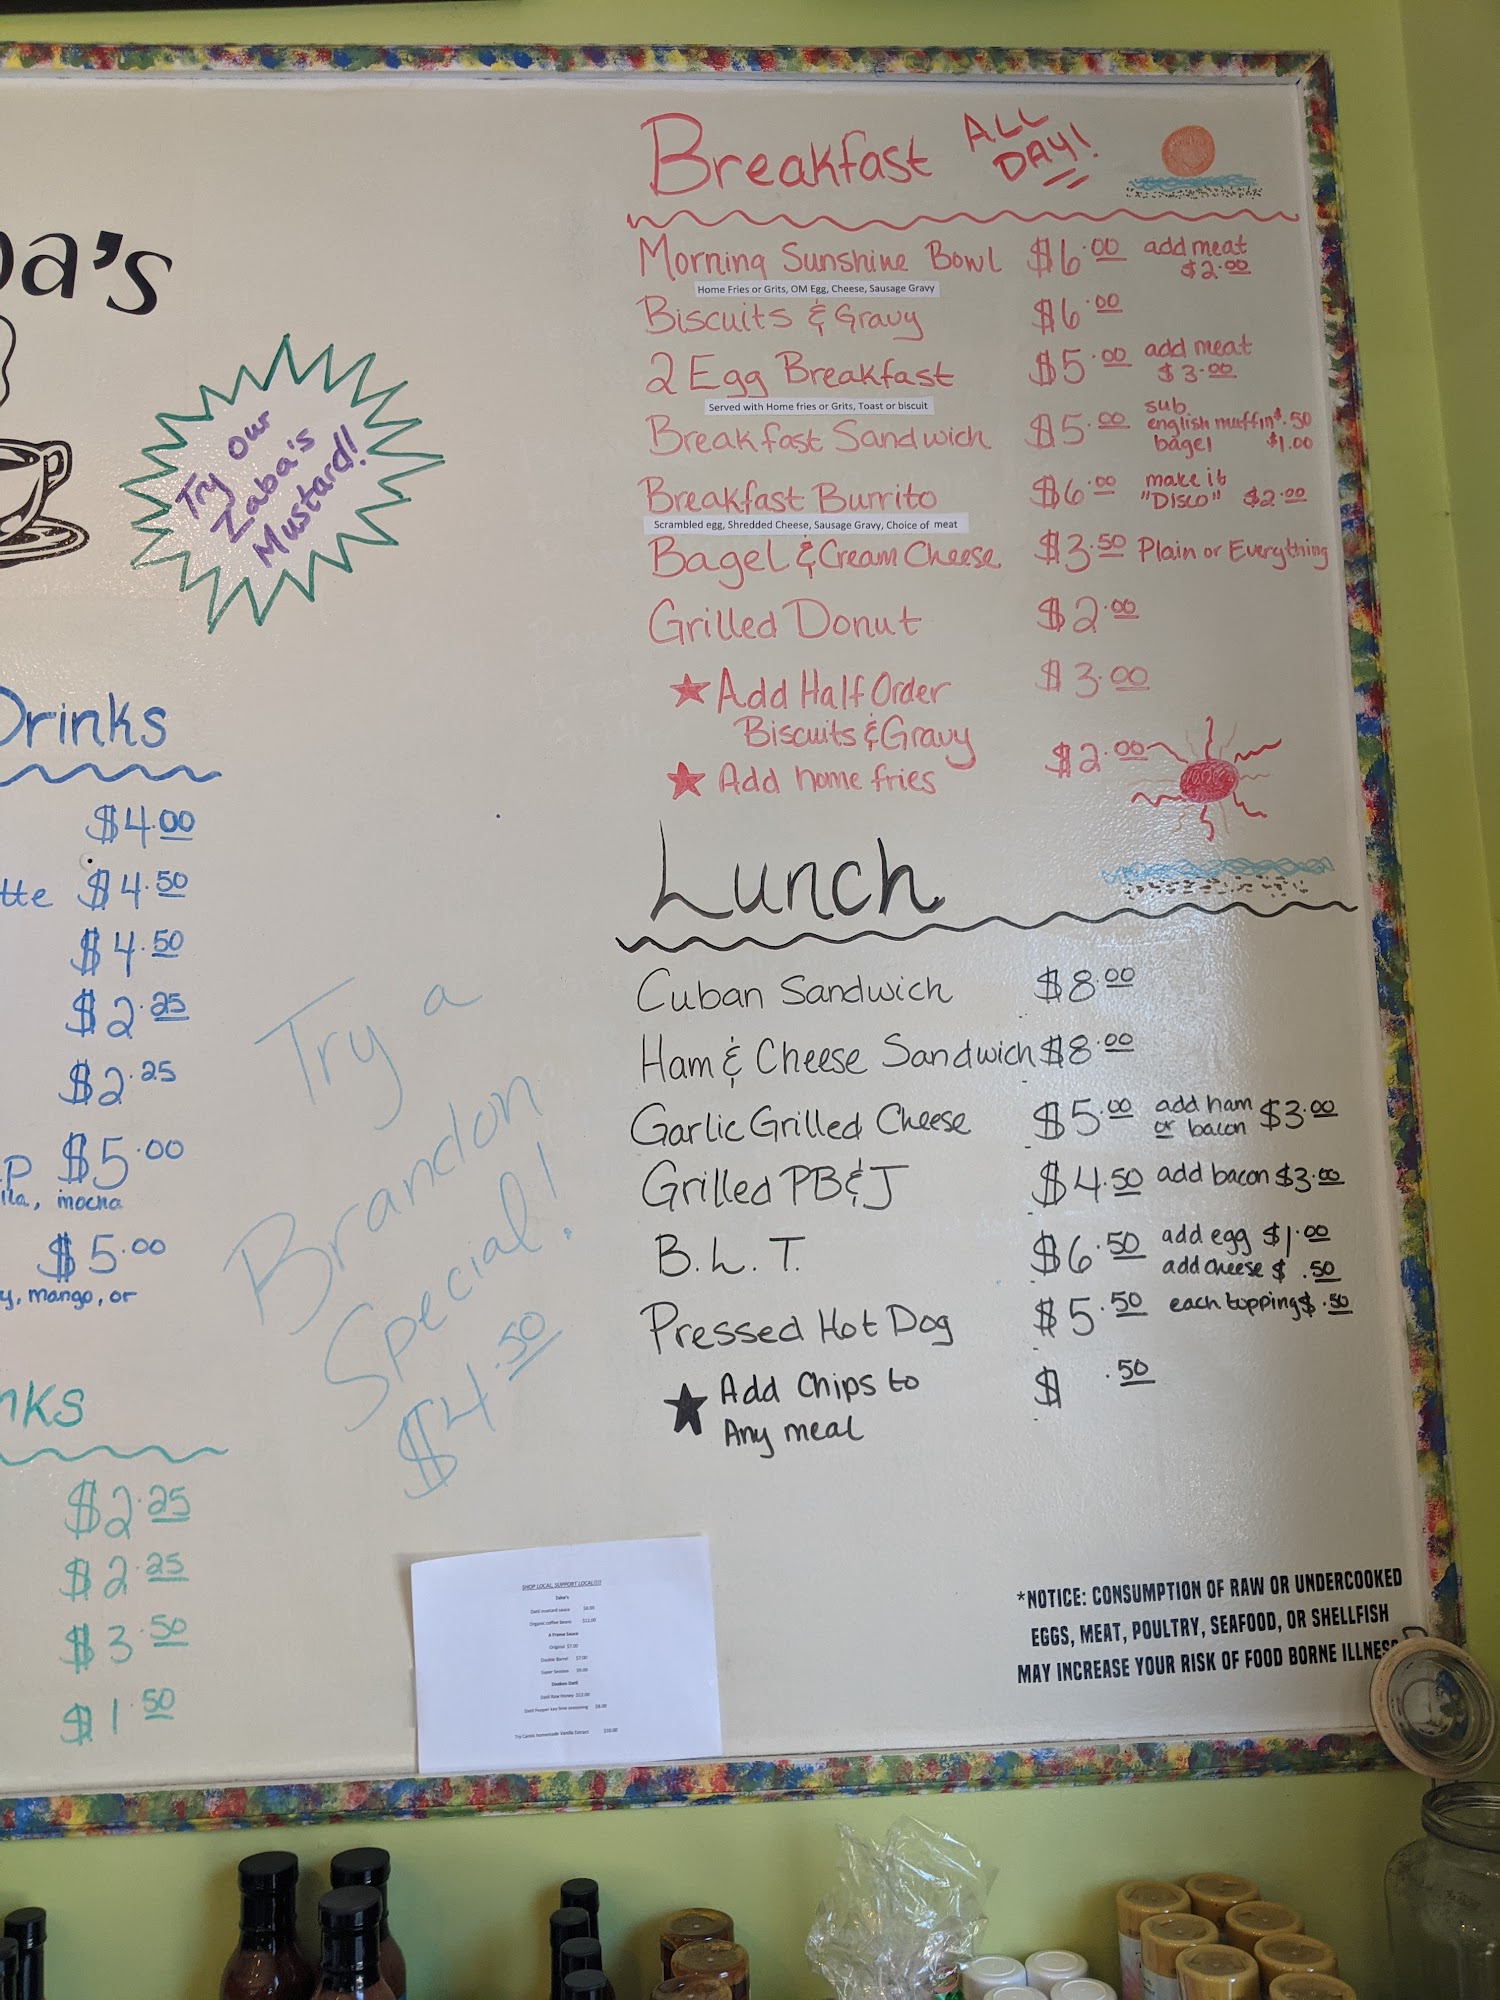 ba's
Try our
Zaba's
Mustard!
Drinks
$4.00
tte $4.50
$4.50
$2.25
$2.25
P $5.00
lla, mocha
$5.00
y, mango, or
nks
$2.25
$2.25
$3.50
$1.50
Try a
Brandon
Special!
$4.50
Breakfast ALL DAY!
Morning Sunshine Bowl $6.00 add meat $2.00
Home Fries or Grits, OM Egg, Cheese, Sausage Gravy
Biscuits & Gravy $6.00
2 Egg Breakfast $5.00 add meat $3.00
Served with Home fries or Grits, Toast or biscuit
Breakfast Sandwich $5.00 sub english muffin $.50
bagel $1.00
Breakfast Burrito $6.00 make it "DISCO" $2.00
Scrambled egg, Shredded Cheese, Sausage Gravy, Choice of meat
Bagel & Cream Cheese $3.50 Plain or Everything
Grilled Donut $2.00
★ Add Half Order $3.00
Biscuits & Gravy
★ Add home fries $2.00
Lunch
Cuban Sandwich $8.00
Ham & Cheese Sandwich $8.00
Garlic Grilled Cheese $5.00 add ham or bacon $3.00
Grilled PB&J $4.50 add bacon $3.00
B.L.T. $6.50 add egg $1.00
add cheese $.50
Pressed Hot Dog $5.50 each topping $.50
★ Add Chips to $.50
Any meal
SHOP LOCAL, SUPPORT LOCAL!!!!
Zaba's
Datil mustard sauce $8.00
Organic coffee Beans $12.00
A Frame Sauce
Original $7.00
Double Barrel $7.00
Super Session
Datil Raw Honey $12.00
Datil Pepper key lime seasoning
homemade Vanilla Extract $10.00
*NOTICE: CONSUMPTION OF RAW OR UNDERCOOKED
EGGS, MEAT, POULTRY, SEAFOOD, OR SHELLFISH
MAY INCREASE YOUR RISK OF FOOD BORNE ILLNESS